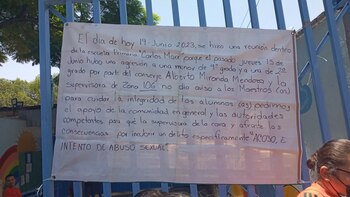 El día de hoy 19 Junio 2023, se hizo una reunión dentro
de la escuela Primaria "Carlos Marx" porque el pasado jueves 15 de
Junio hubo una agresion a una menor de 4º grado y a una de 2º
grado por parte del conserje Alberto Miranda Mendoza y la
supervisora de Zona 106 no dio aviso a los Maestros (as)
para cuidar la integridad de los alumnos (as) pedimos
el apoyo de la comunidad en general y las autoridades
competentes para que la supervisora de la cara y afronte las
consecuencias por incubrir un delito especificamente "ACOSO, E
INTENTO DE ABUSO SEXUAL"